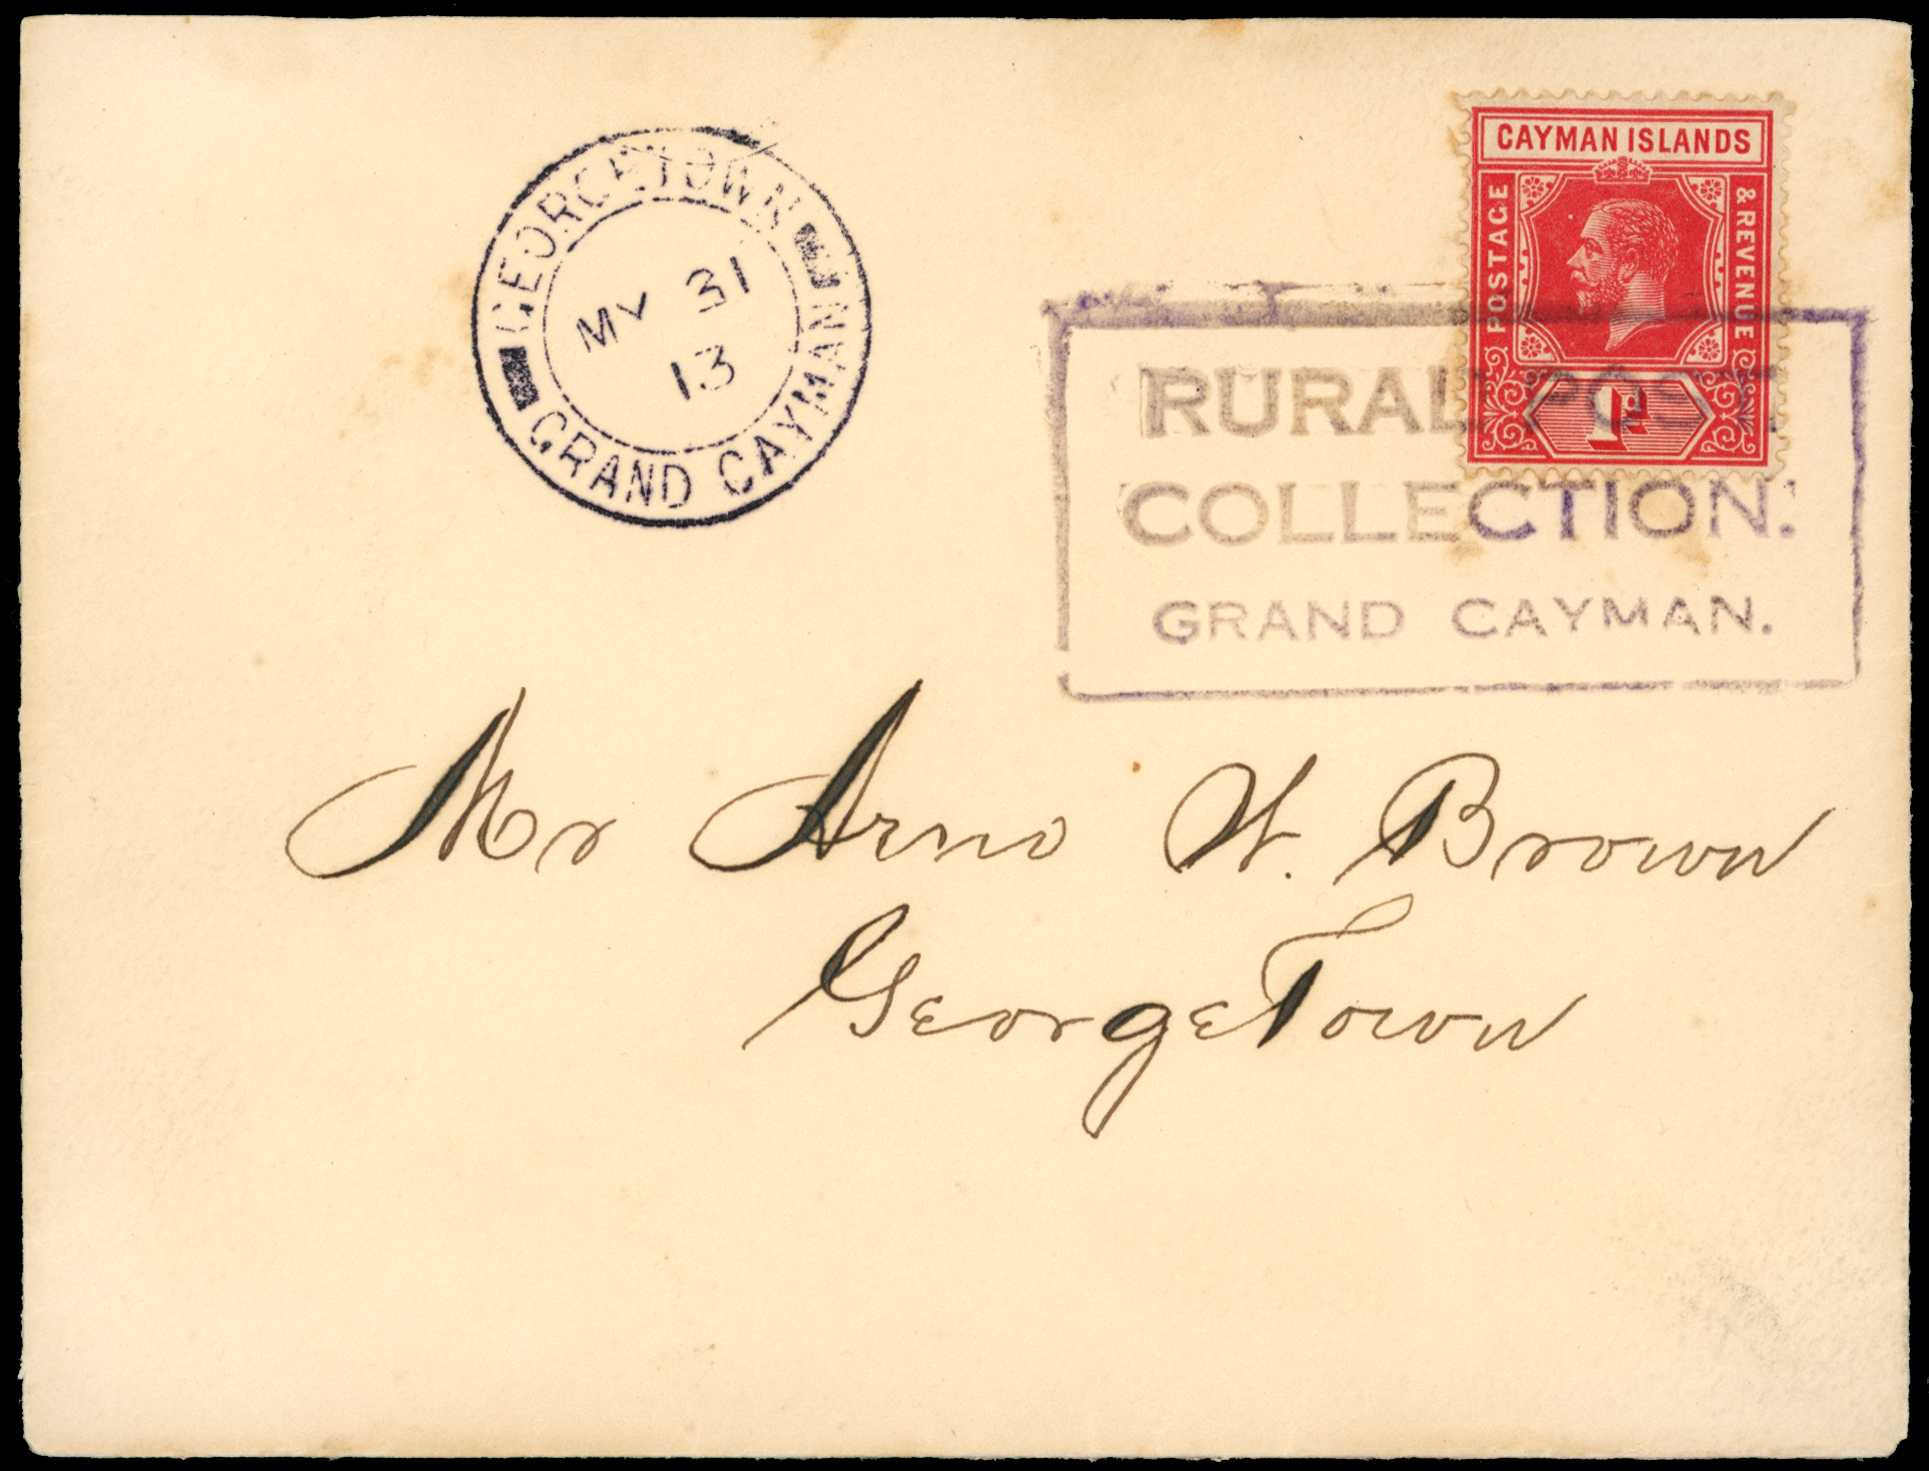 GEORGETOWN
MY 31
13
GRAND CAYMAN
CAYMAN ISLANDS
POSTAGE
& REVENUE
1d
RURAL POST
COLLECTION.
GRAND CAYMAN.
Mr Arno W. Brown
GeorgeTown